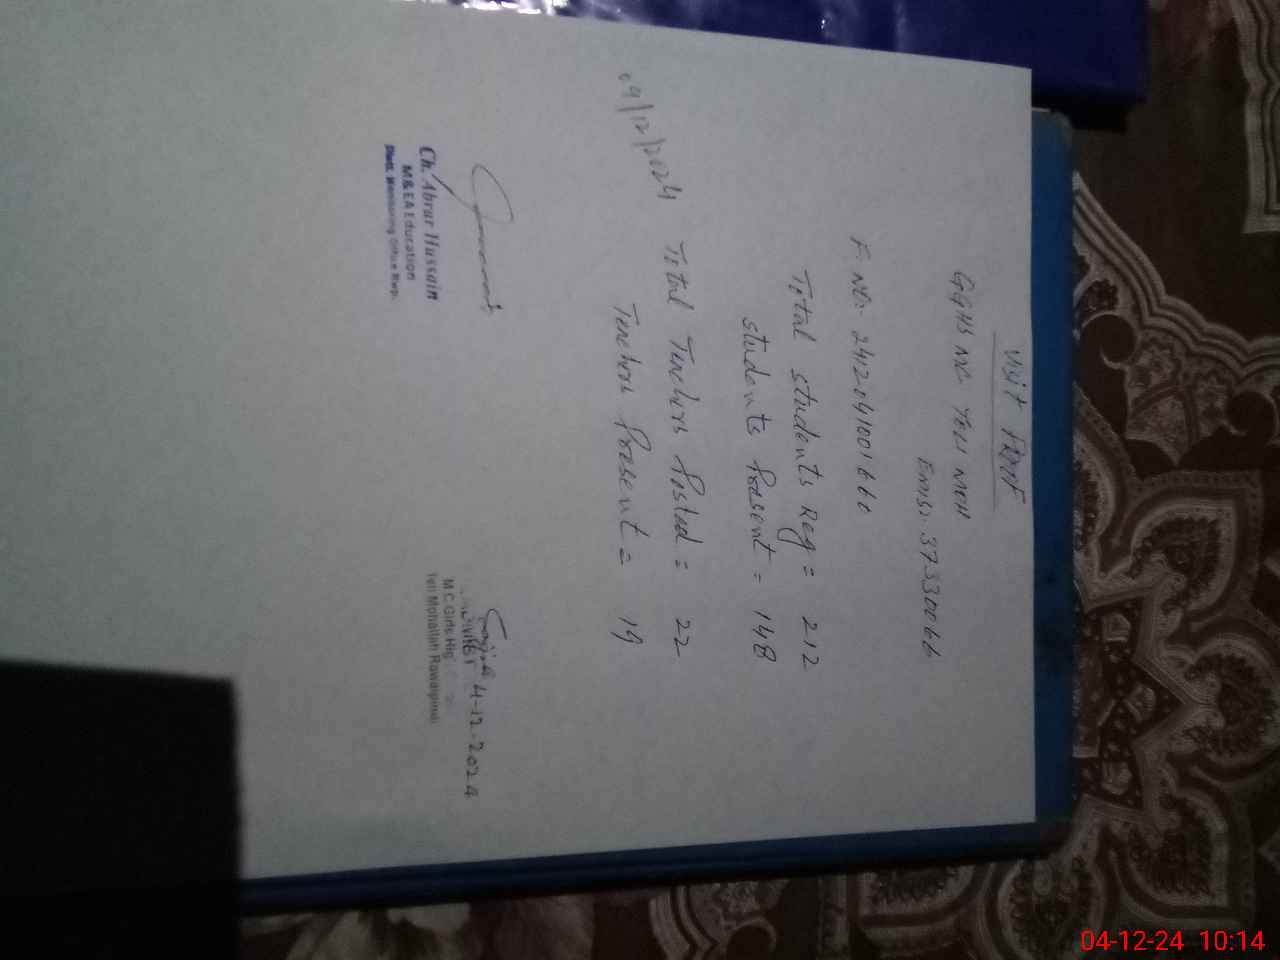 Visit Proof
GGHS MC. Teli MOH
Emis:. 37330066
F. No:. 2412041001660
Total students Reg = 212
students Present = 148
Total Teachers Posted = 22
Teachers Present = 19
04/12/2024
Ch. Abrar Hussain
M&EA Education
Distt. Monitoring Office Rwp.
4-12-2024
M.C Girls Hig
Teli Mohallah Rawalpindi
04-12-24 10:14